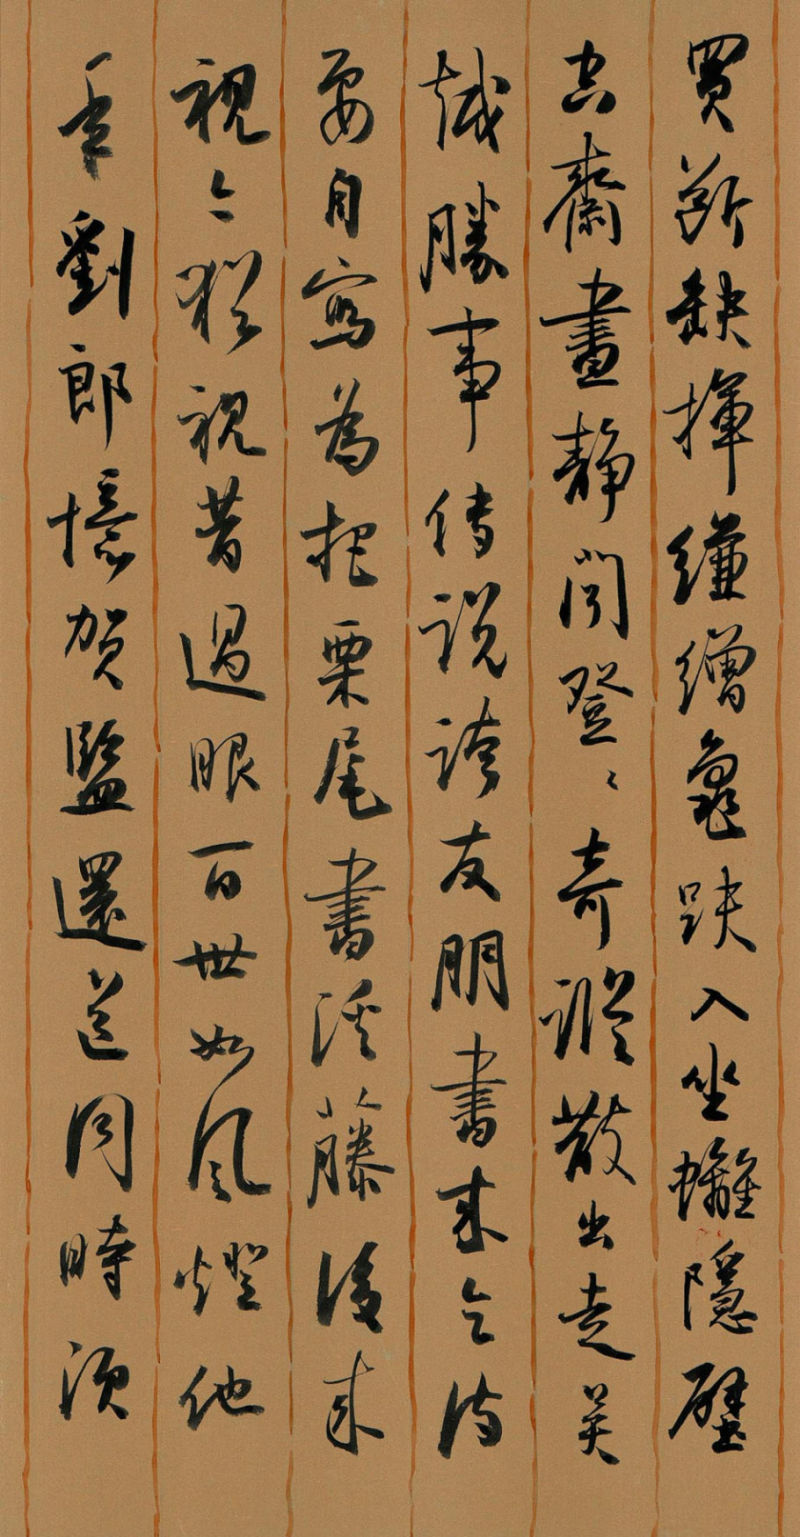 買斷缺揮縑繒龜趺入坐螭隱壁
空齋晝靜聞登〻奇蹤散出走吳
越勝事傳說誇友朋書來乞詩
要自寫為把栗尾書溪藤後來
視今猶視昔過眼百世如風燈他
年劉郎憶賀監還道同時須